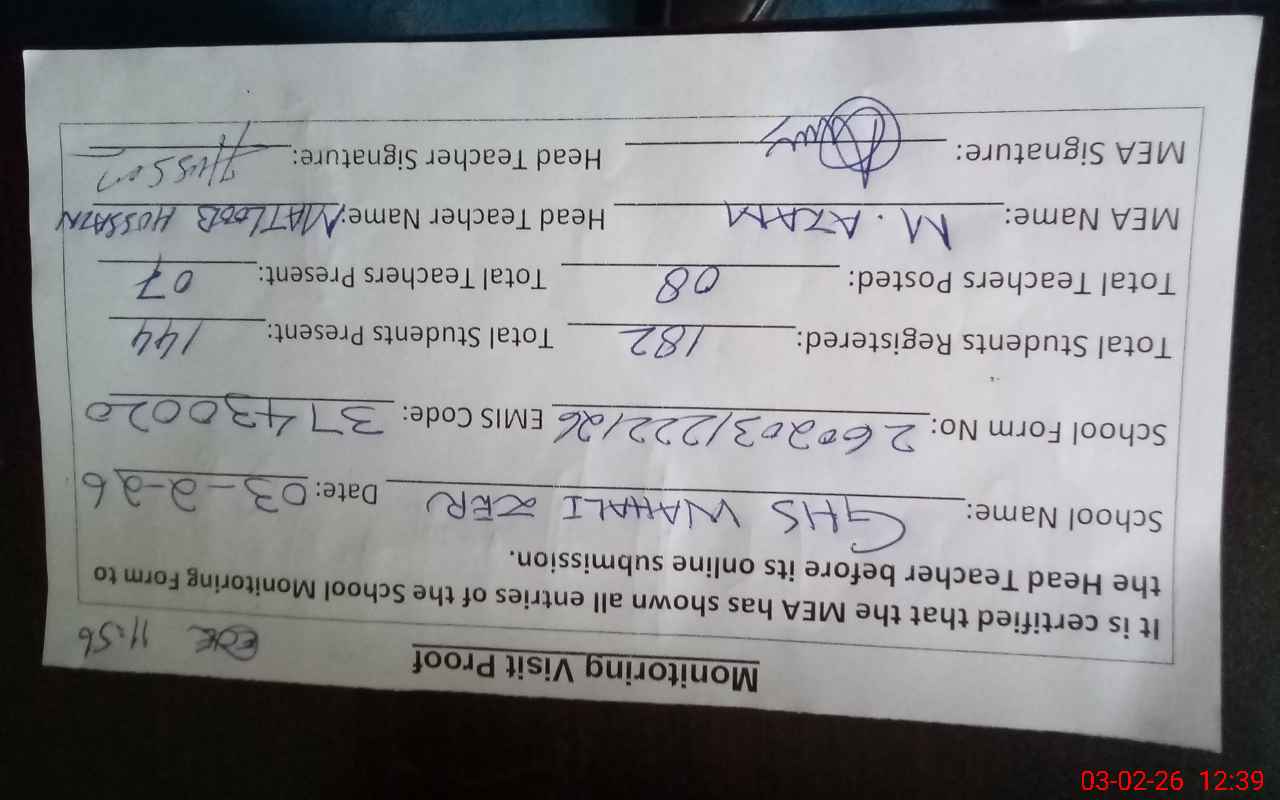 Monitoring Visit Proof
11:56
It is certified that the MEA has shown all entries of the School Monitoring Form to
the Head Teacher before its online submission.
School Name: GHS WAHALI ZER Date: 03-2-26
School Form No: 260203/222126 EMIS Code: 37430020
Total Students Registered: 182 Total Students Present: 144
Total Teachers Posted: 08 Total Teachers Present: 07
MEA Name: M. AZAM Head Teacher Name: MATLOOB HUSSAIN
MEA Signature: Head Teacher Signature:
03-02-26 12:39